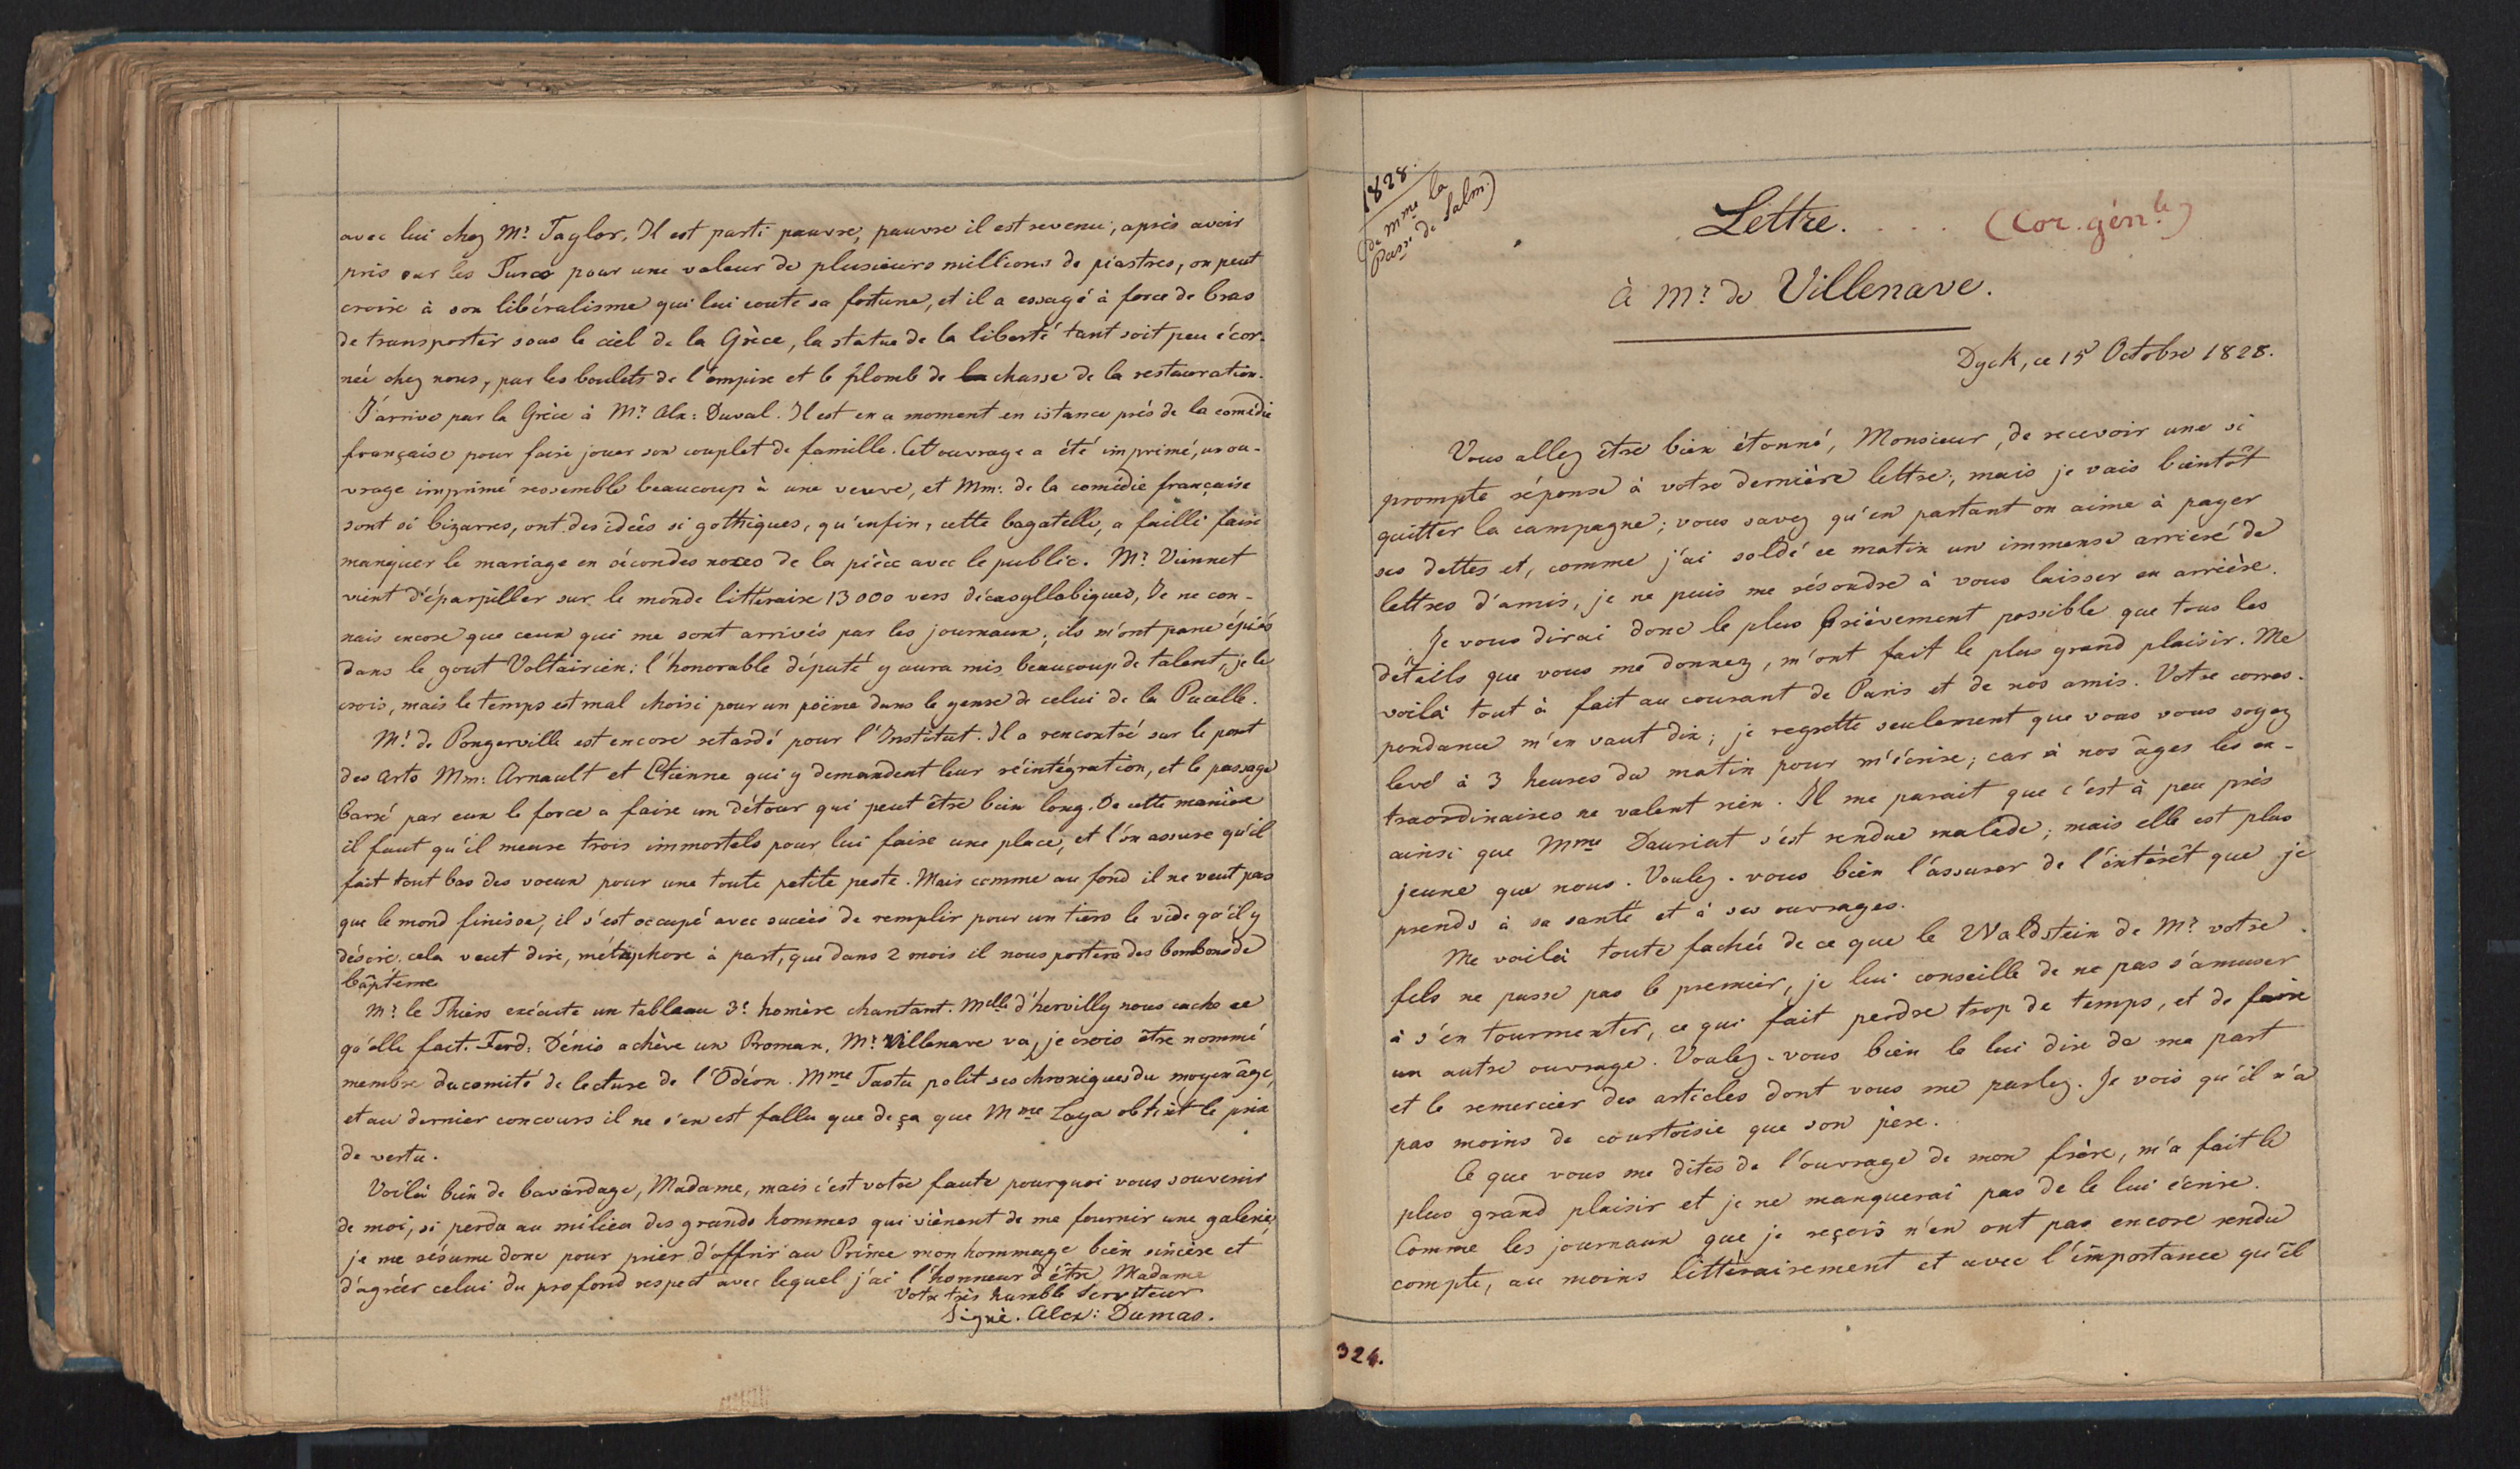 avec lui chez Mr. Taylor. Il est parti pauvre, pauvre il est revenu, après avoir
pris sur les Turcs pour une valeur de plusieurs millions de piastres, on peut
croire à son libéralisme qui lui coute sa fortune, et il a essayé à force de bras
de transporter sous le ciel de la Grèce, la statue de la liberté tant soit peu écor-
née chez nous, par les boulets de l'empire et le plomb de la chasse de la restauration.
J'arrive par la Grèce à Mr. Alx: Duval. Il est en a moment en istance près de la comédie
française pour faire jouer son couplet de famille. Cet ouvrage a été imprimé, un ou-
vrage imprimé ressemble beaucoup à une veuve, et Mm: de la comédie française
sont si bizarres, ont des idées si gothiques, qu'enfin, cette bagatelle, a failli faire
manquer le mariage en sécondes noces de la pièce avec le public. Mr. Viennet
vient d'éparpiller sur le monde littéraire 13000 vers décasyllabiques, Je ne con-
nais encore que ceux qui me sont arrivés par les journaux; ils m'ont paru épicés
dans le gout Voltairien: l'honorable député y aura mis beaucoup de talent, je le
crois, mais le temps est mal choisi pour un poëme dans le genre de celui de la Pucelle.
Mr. de Pongerville est encore retardé pour l'Institut. Il a rencontré sur le pont
des arts Mm: Arnault et Etienne qui y demandent leur réintégration, et le passage
barré par eux le force a faire un détour qui peut être bien long. De cette manière
il faut qu'il meure trois immortels pour lui faire une place, et l'on assure qu'il
fait tout bas des voeux pour une toute petite peste. Mais comme au fond il ne veut pas
que le mond finisse, il s'est occupé avec succès de remplir pour un tiers le vide qu'il y
désire. cela veut dire, métaphore à part, que dans 2 mois il nous portera des bombons de
bâptême
Mr. le Thiers exécute un tableau 3º. homère chantant. Melle d'hervilly nous cache ce
qu'elle fait. Ferd: Dénis achève un Roman. Mr. Villenave va, je crois être nommé
membre du comité de lecture de l'Odéon. Mme Tastu polit ses chroniques du moyen âge,
et au dernier concours il ne s'en est fallu que de ça que Mme Laya obtint le prix
de vertu.
Voilà bien de bavardage, Madame, mais c'est votre faute pourquoi vous souvenir
de moi, si perdu au milieu des grands hommes qui viènent de me fournir une galerie,
je me résume donc pour prier d'offrir au Prince mon hommage bien sincère et
d'agréer celui du profond respect avec lequel j'ai l'honneur d'être, Madame
Votre très humble Serviteur
Signé. Alex: Dumas.
1828.
(de Mme la
Passe de Salm.)
Lettre. . . . (Cor. génle)
à Mr. de Villenave.
Dyck, ce 15 Octobre 1828.
Vous allez être bien étonné, Monsieur, de recevoir une si
prompte réponse à votre dernière lettre; mais je vais bientôt
quitter la campagne; vous savez qu'en partant on aime à payer
ses dettes et, comme j'ai soldé ce matin un immense arriéré de
lettres d'amis, je ne puis me résoudre à vous laisser en arrière.
Je vous dirai donc le plus brièvement possible que tous les
détails que vous me donnez, m'ont fait le plus grand plaisir. Me
voilà tout à fait au courant de Paris et de nos amis. Votre corres-
pondance m'en vaut dix; je regrette seulement que vous vous soyez
levé à 3 heures du matin pour m'écrire; car à nos âges les ex-
traordinaires ne valent rien. Il me parait que c'est à peu près
ainsi que Mme Dauriat s'est rendue malade; mais elle est plus
jeune que nous. Voulez-vous bien l'assurer de l'intérêt que je
prends à sa santé et à ses ouvrages.
Me voilà toute fachée de ce que le Waldstein de Mr. votre
fils ne passe pas le premier, je lui conseille de ne pas s'amuser
à s'en tourmenter, ce qui fait perdre trop de temps, et de faire
un autre ouvrage. Voulez-vous bien le lui dire de ma part
et le remercier des articles dont vous me parlez. Je vois qu'il n'a
pas moins de courtoisie que son père.
Ce que vous me dites de l'ouvrage de mon frère, m'a fait le
plus grand plaisir et je ne manquerai pas de le lui écrire.
Comme les journaux que je reçois n'en ont pas encore rendu
compte, au moins littérairement et avec l'importance qu'il
324.